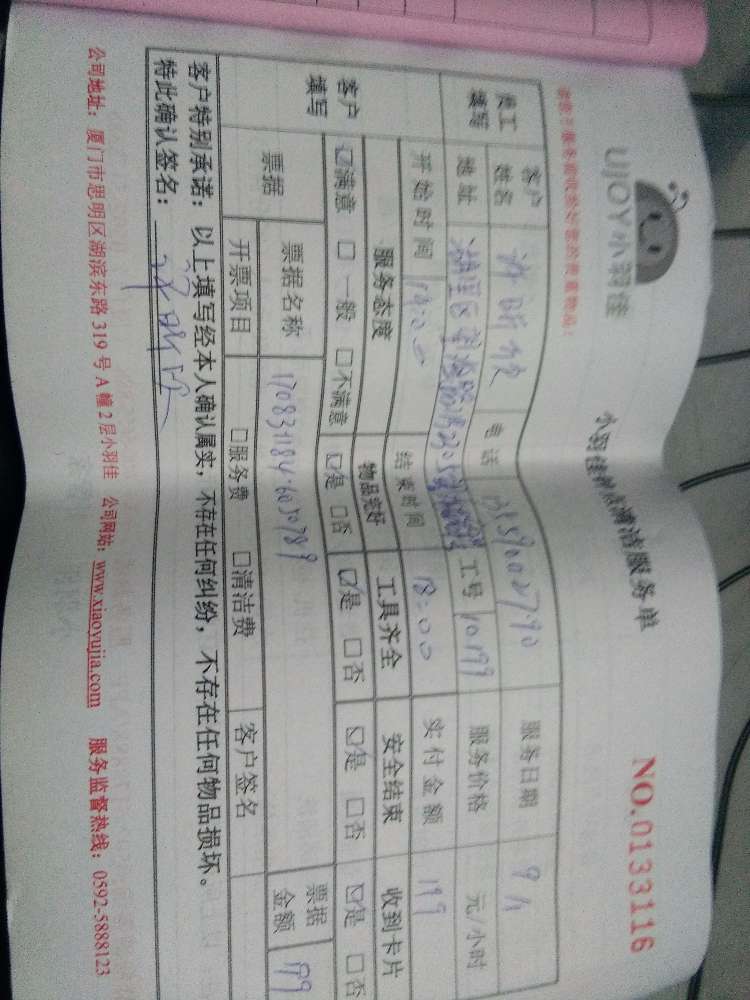 UJOY小羽佳
小羽佳 清洁服务单
NO.0133116
员工填写 客户姓名 电话 服务日期
地址 湖里区 工号 10199 服务价格 元/小时
开始时间 14:00 结束时间 18:00 实付金额 199
客户填写 服务态度 物品完好 工具齐全 安全结束 收到卡片
☑满意 □一般 □不满意 ☑是 □否 ☑是 □否 ☑是 □否 ☑是 □否
票据 票据名称 170831184-6050789 票据金额 199
开票项目 □服务费 □清洁费 客户签名
客户特别承诺:以上填写经本人确认属实,不存在任何纠纷,不存在任何物品损坏。
特此确认签名:
公司地址:厦门市思明区湖滨东路319号A幢2层小羽佳 公司网站:www.xiaoyujia.com 服务监督热线:0592-5888123